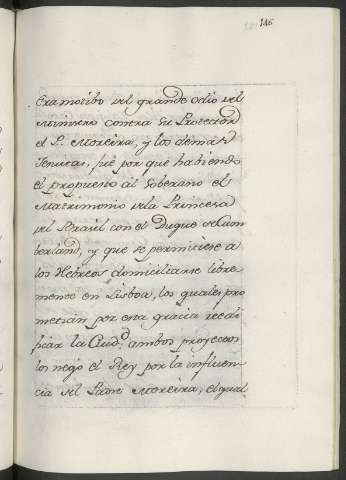 146
era motibo del grande odio del
Ministro contra su Protector
el P. Moreira, y los demas
Jesuitas, fué por que habiendo
el propuesto al Soberano el
Matrimonio dela Princesa
del Brasil con el Duque de Cum
berland, y que se permitiese a
los Hebreos domiciliarse libre
mente en Lisboa, los quales pro
metian por esta gracia reedi
ficar la Ciud.d ambos proyectos
los negó el Rey por la influen
cia del Padre Moreira, el qual